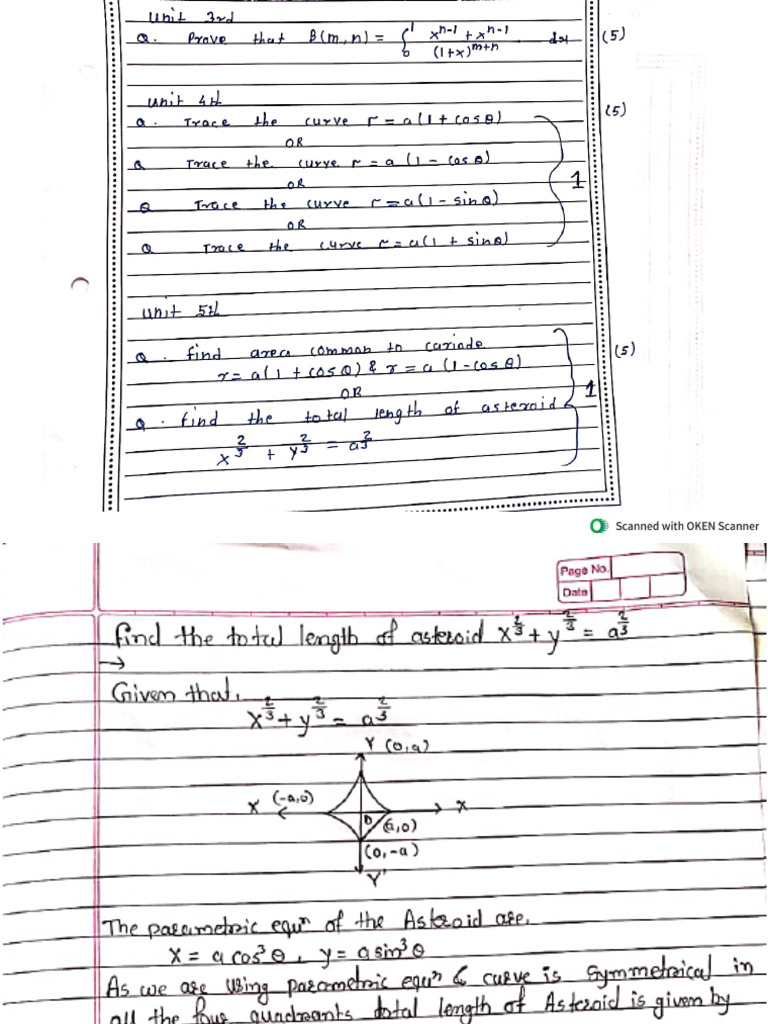 Unit 3rd
Q. Prove that β(m,n) = ∫₀¹ xⁿ⁻¹ + xⁿ⁻¹ / (1+x)ᵐ⁺ⁿ dx (5)
Unit 4th (5)
Q. Trace the curve r = a(1 + cosθ)
OR
Q Trace the curve r = a (1 - cosθ)
OR 1
Q Trace the curve r = a(1 - sinθ)
OR
Q Trace the curve r = a(1 + sinθ)
Unit 5th
Q. find area common to cariode (5)
r = a(1 + cosθ) & r = a (1 - cosθ)
OR 1
Q. find the total length of asteroid
x^2/3 + y^2/3 = a^2/3
Scanned with OKEN Scanner
Page No.
Date
find the total length of asteroid x^2/3 + y^2/3 = a^2/3
→
Given that,
x^2/3 + y^2/3 = a^2/3
Y (0,a)
X' (-a,0) X
O (a,0)
(0,-a)
Y'
The parametric equⁿ of the Asteroid are,
x = a cos³θ, y = a sin³θ
As we are using parametric equⁿ & curve is Symmetrical in
all the four quadrants total length of Asteroid is given by